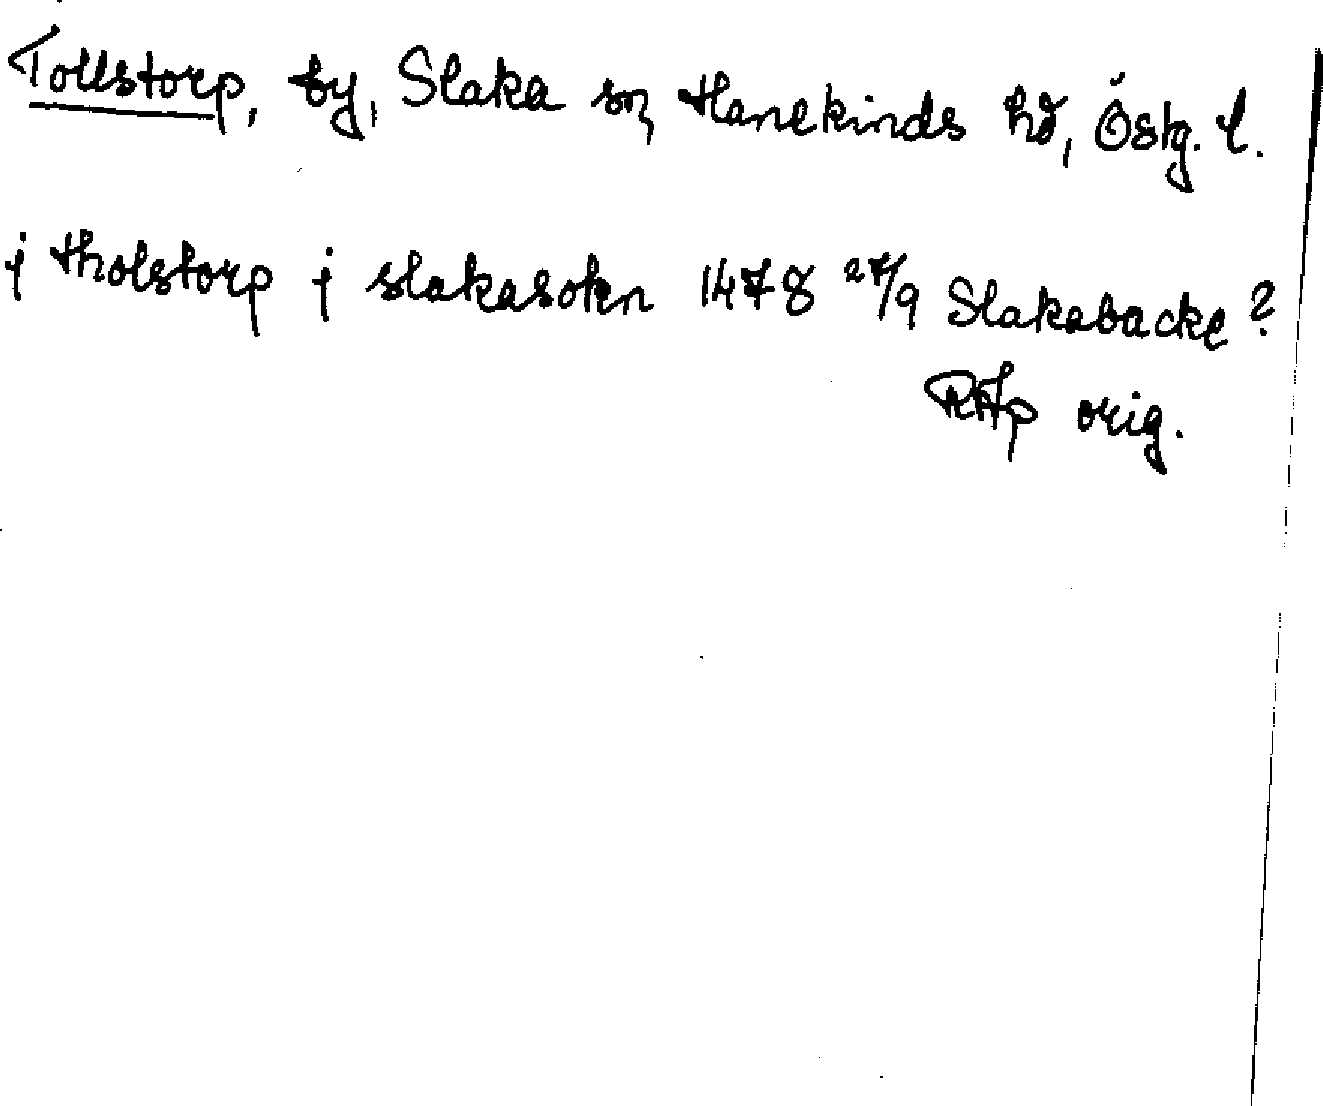 Tollstorp, by, Slaka sn Hanekinds hd, Östg. l.
j tholstorp j slakasokn 1478 27/9 Slakabacke?
RAp orig.